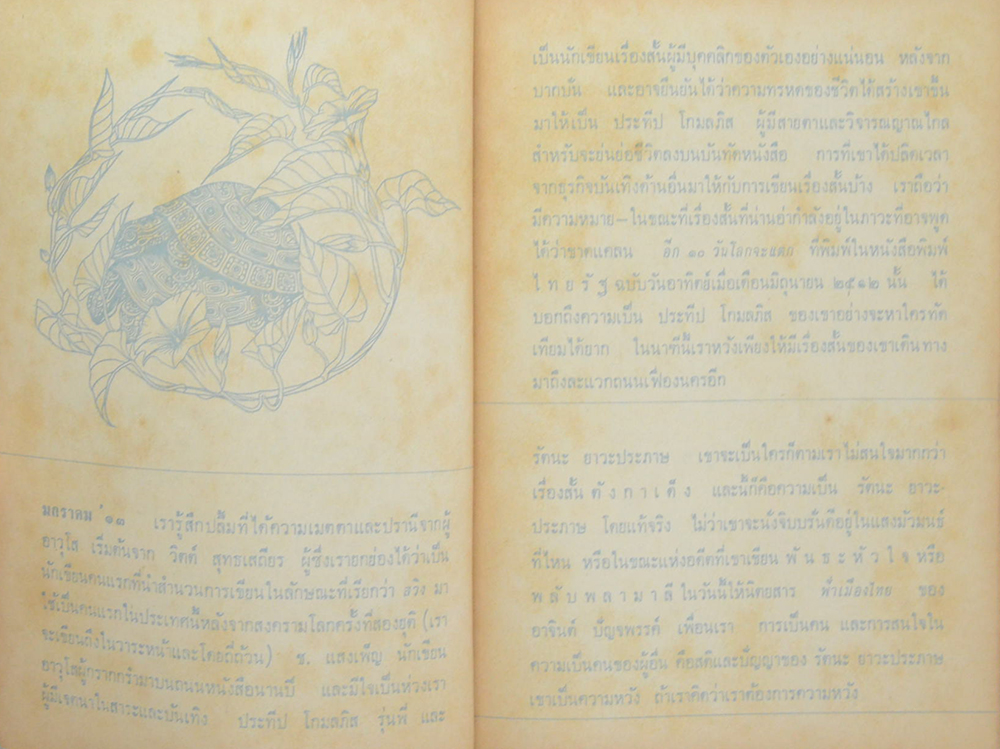 มกราคม '๑๓ เรารู้สึกปลื้มที่ได้ความเมตตาและปรานีจากผู้
อาวุโส เริ่มต้นจาก วิตต์ สุทธเสถียร ผู้ซึ่งเรายกย่องได้ว่าเป็น
นักเขียนคนแรกที่นำสำนวนการเขียนในลักษณะที่เรียกว่า สวิง มา
ใช้เป็นคนแรกในประเทศนี้หลังจากสงครามโลกครั้งที่สองยุติ (เรา
จะเขียนถึงในวาระหน้าและโดยถี่ถ้วน) ช. แสงเพ็ญ นักเขียน
อาวุโสผู้กรากกรำมาบนถนนหนังสือนานปี และมีใจเป็นห่วงเรา
ผู้มีเจตนาในสาระและบันเทิง ประทีป โกมลภิส รุ่นพี่ และ
เป็นนักเขียนเรื่องสั้นผู้มีบุคคลิกของตัวเองอย่างแน่นอน หลังจาก
บากบั่น และอาจยืนยันได้ว่าความทรหดของชีวิตได้สร้างเขาขึ้น
มาให้เป็น ประทีป โกมลภิส ผู้มีสายตาและวิจารณญาณไกล
สำหรับจะย่นย่อชีวิตลงบนบันทัดหนังสือ การที่เขาได้ปลีกเวลา
จากธุรกิจบันเทิงด้านอื่นมาให้กับการเขียนเรื่องสั้นบ้าง เราถือว่า
มีความหมาย—ในขณะที่เรื่องสั้นที่น่าอ่านกำลังอยู่ในภาวะที่อาจพูด
ได้ว่าขาดแคลน อีก ๑๐ วันโลกจะแตก ที่พิมพ์ในหนังสือพิมพ์
ไทยรัฐ ฉบับวันอาทิตย์เมื่อเดือนมิถุนายน ๒๕๑๒ นั้น ได้
บอกถึงความเป็น ประทีป โกมลภิส ของเขาอย่างจะหาใครทัด
เทียมได้ยาก ในนาฑีนี้เราหวังเพียงให้มีเรื่องสั้นของเขาเดินทาง
มาถึงละแวกถนนเฟื่องนครอีก
รัตนะ ยาวะประภาษ เขาจะเป็นใครก็ตามเราไม่สนใจมากกว่า
เรื่องสั้น ตังกาเต็ง และนี้ก็คือความเป็น รัตนะ ยาวะ-
ประภาษ โดยแท้จริง ไม่ว่าเขาจะนั่งจิบบรั่นดีอยู่ในแสงมัวมนธ์
ที่ไหน หรือในขณะแห่งอดีตที่เขาเขียน พันธะหัวใจ หรือ
พลับพลามาลี ในวันนี้ให้นิตยสาร ฟ้าเมืองไทย ของ
อาจินต์ ปัญจพรรค์ เพื่อนเรา การเป็นคน และการสนใจใน
ความเป็นคนของผู้อื่น คือสติและปัญญาของ รัตนะ ยาวะประภาษ
เขาเป็นความหวัง ถ้าเราคิดว่าเราต้องการความหวัง